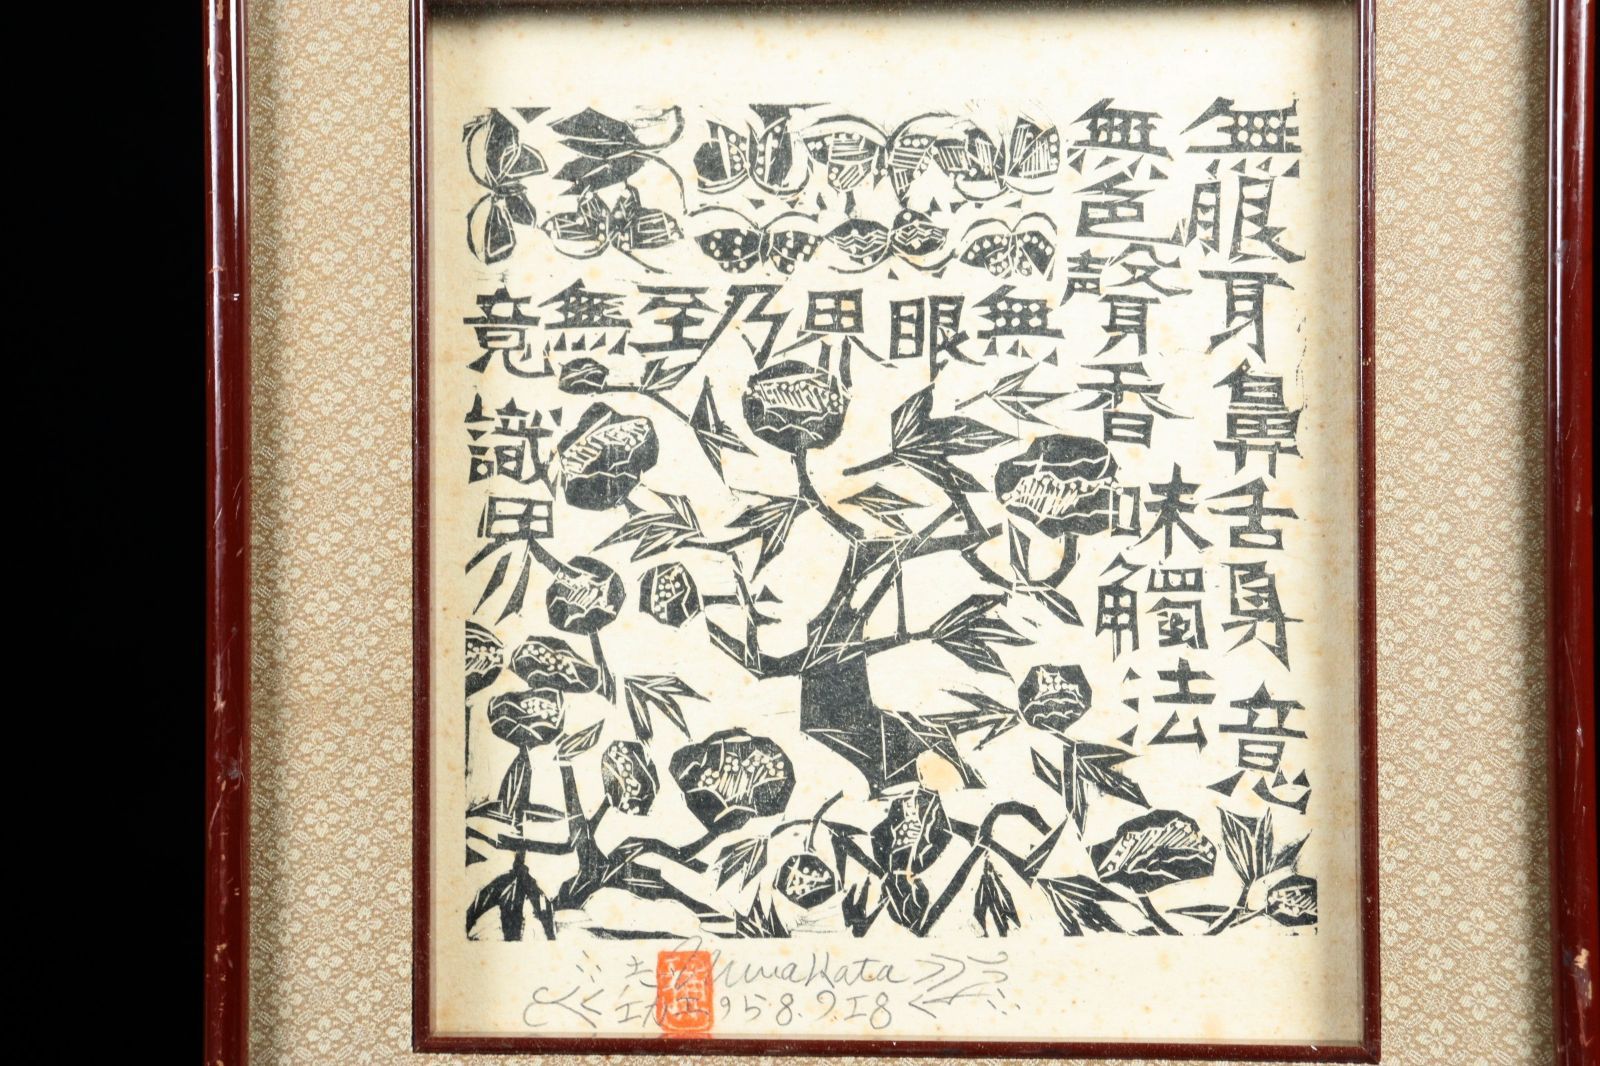 無眼耳鼻舌身意
無色聲香味觸法
無眼界乃至無意
識界
Munakata
1958.9.18